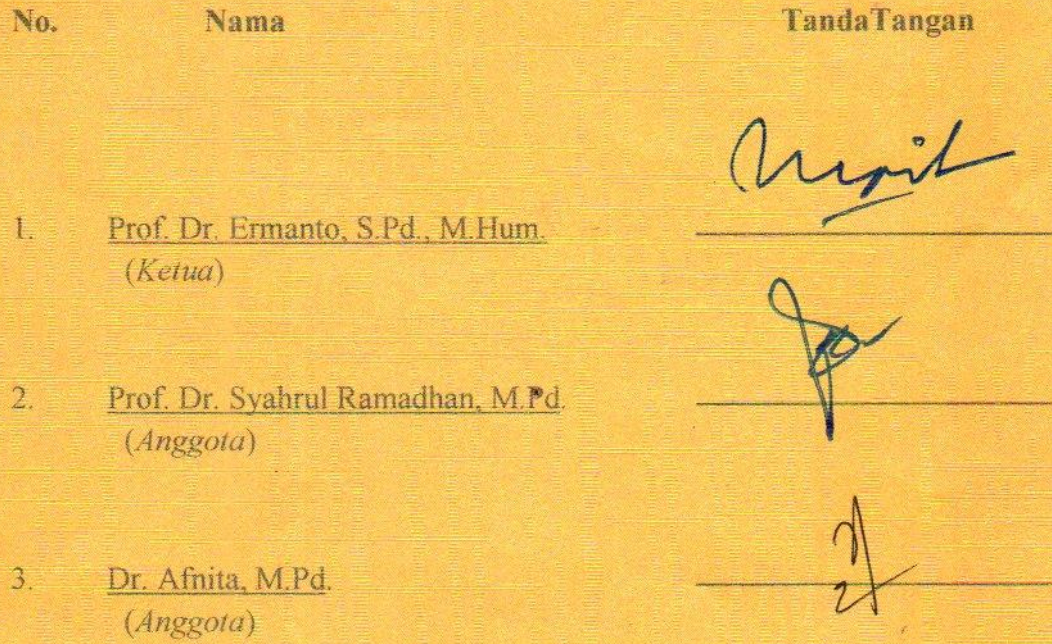 No. Nama TandaTangan
1. Prof. Dr. Ermanto, S.Pd., M.Hum.
(Ketua)
2. Prof. Dr. Syahrul Ramadhan, M.Pd.
(Anggota)
3. Dr. Afnita, M.Pd.
(Anggota)